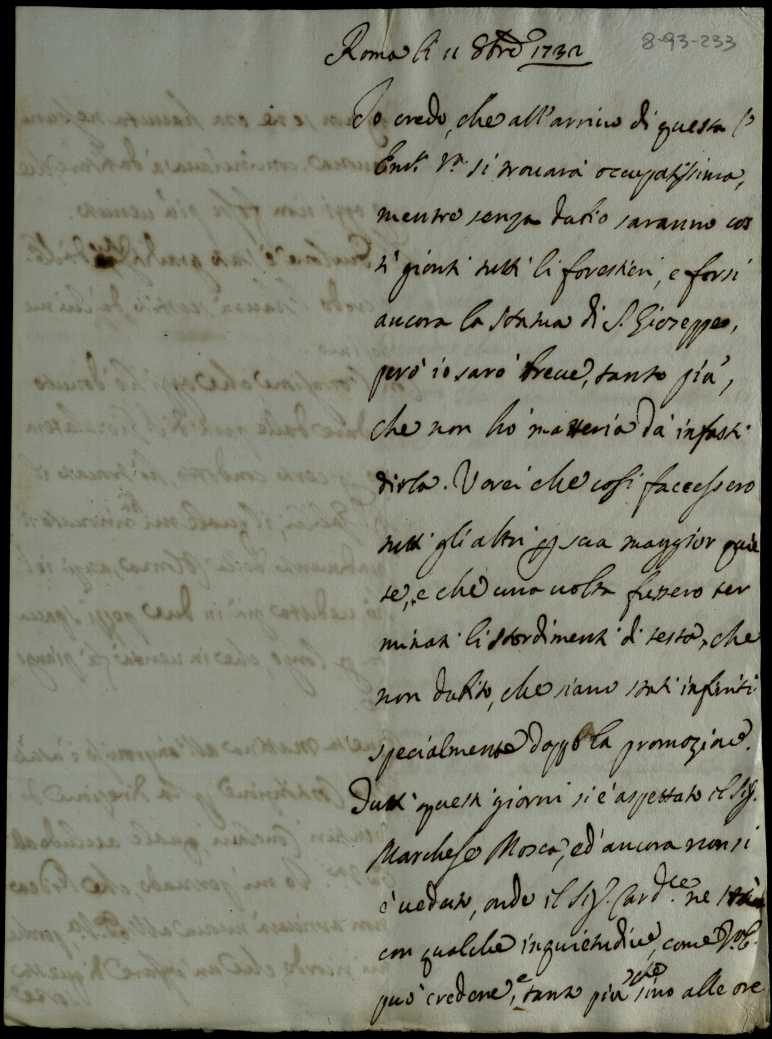 8-93-233
Roma li 11 8bre 1732
Io credo, che all'arrivo di questa l'
Em.za V.ra si trovarà occupatissima,
mentre senza dubio saranno cos
tì gionti tutti li forestieri, e forsi
ancora la statua di S. Gioseppe,
però io sarò breve, tanto più,
che non hò matteria da infasti
dirla. Vorei che così faccessero
tutti gli altri per sua maggior quie
te, e che una volta fussero ter
minati li stordimenti di testa, che
non dubito, che siano stati infiniti
specialmente doppo la promozione.
Tutti questi giorni si è aspettato il Sig.
Marchese Mosca, ed ancora non si
è veduto, onde il Sig. Card.le ne stà
con qualche inquietudine, come V. E.
può credere, e tanto più che sino alle ore